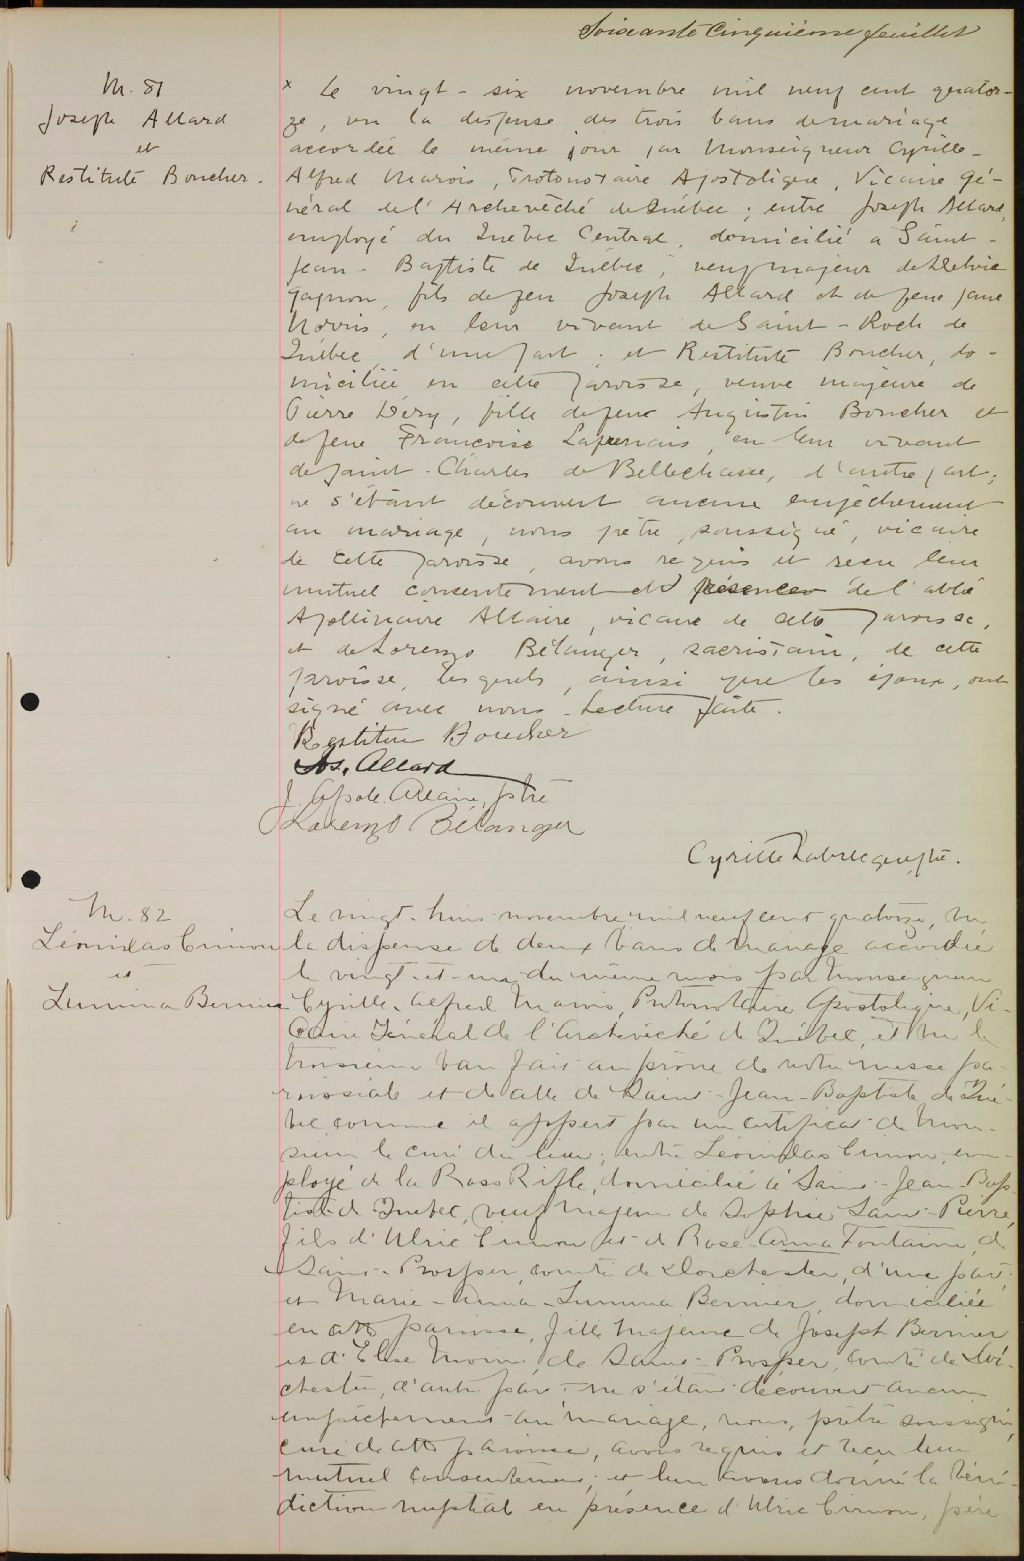 Soixante Cinquième feuillet
M. 81
Joseph Allard
et
Restitute Boucher.
x Le vingt-six novembre mil neuf cent quator-
ze, vu la dispense des trois bans de mariage
accordée le même jour par Monseigneur Cyrille-
Alfred Marois, Protonotaire Apostolique, Vicaire Gé-
néral de l'Archevêché de Québec; entre Joseph Allard,
employé du Québec Central, domicilié à Saint-
Jean-Baptiste de Québec, veuf majeur de Delvie
Gagnon, fils de feu Joseph Allard et de feue Jane
Norris, en leur vivant de Saint-Roch de
Québec, d'une part; et Restitute Boucher, do-
miciliée en cette paroisse, veuve majeure de
Pierre Déry, fille de feu Augustin Boucher et
de feue Françoise en leur vivant
de Saint-Charles de Bellechasse, d'autre part;
ne s'étant découvert aucun empêchement
au mariage, nous prêtre, soussigné, vicaire
de cette paroisse, avons requis et reçu leur
mutuel consentement en présence de l'abbé
Apollinaire Allaire, vicaire de cette paroisse,
et de Lorenzo Bélanger, sacristain, de cette
paroisse, lesquels, ainsi que les époux, ont
signé avec nous. Lecture faite.
Restitue Boucher
Jos. Allard
J. Apol. Allaire, ptre
Lorenzo Bélanger
Cyrille Labrecque, ptre.
M. 82
Léonidas Cimon
et
Lumina Bernier
Le vingt-huit novembre mil neuf cent quatorze, vu
la dispense de deux bans de mariage accordée
le vingt-et-un du même mois par Monseigneur
Cyrille-Alfred Marois, Protonotaire Apostolique, Vi-
caire Général de l'Archevêché de Québec, et vu le
troisième ban fait au prône de notre messe pa-
roissiale et de celle de Saint-Jean-Baptiste de Qué-
bec, comme il appert par un certificat de Mon-
sieur le curé du lieu; entre Léonidas Cimon, em-
ployé de la Ross Rifle, domicilié à Saint-Jean-Bap-
tiste de Québec, veuf majeur de Sophie Saint-Pierre,
fils d'Ulric Cimon et de Rose-Anna Fontaine, de
Saint-Prosper, comté de Dorchester, d'une part;
et Marie-Anna-Lumina Bernier, domiciliée
en cette paroisse, fille majeure de Joseph Bernier
et d'Elise Morin de Saint-Prosper, comté de Dor-
chester, d'autre part; ne s'étant découvert aucun
empêchement au mariage, nous, prêtre soussigné,
curé de cette paroisse, avons requis et reçu leur
mutuel consentement, et leur avons donné la béné-
diction nuptiale en présence d'Ulric Cimon, père